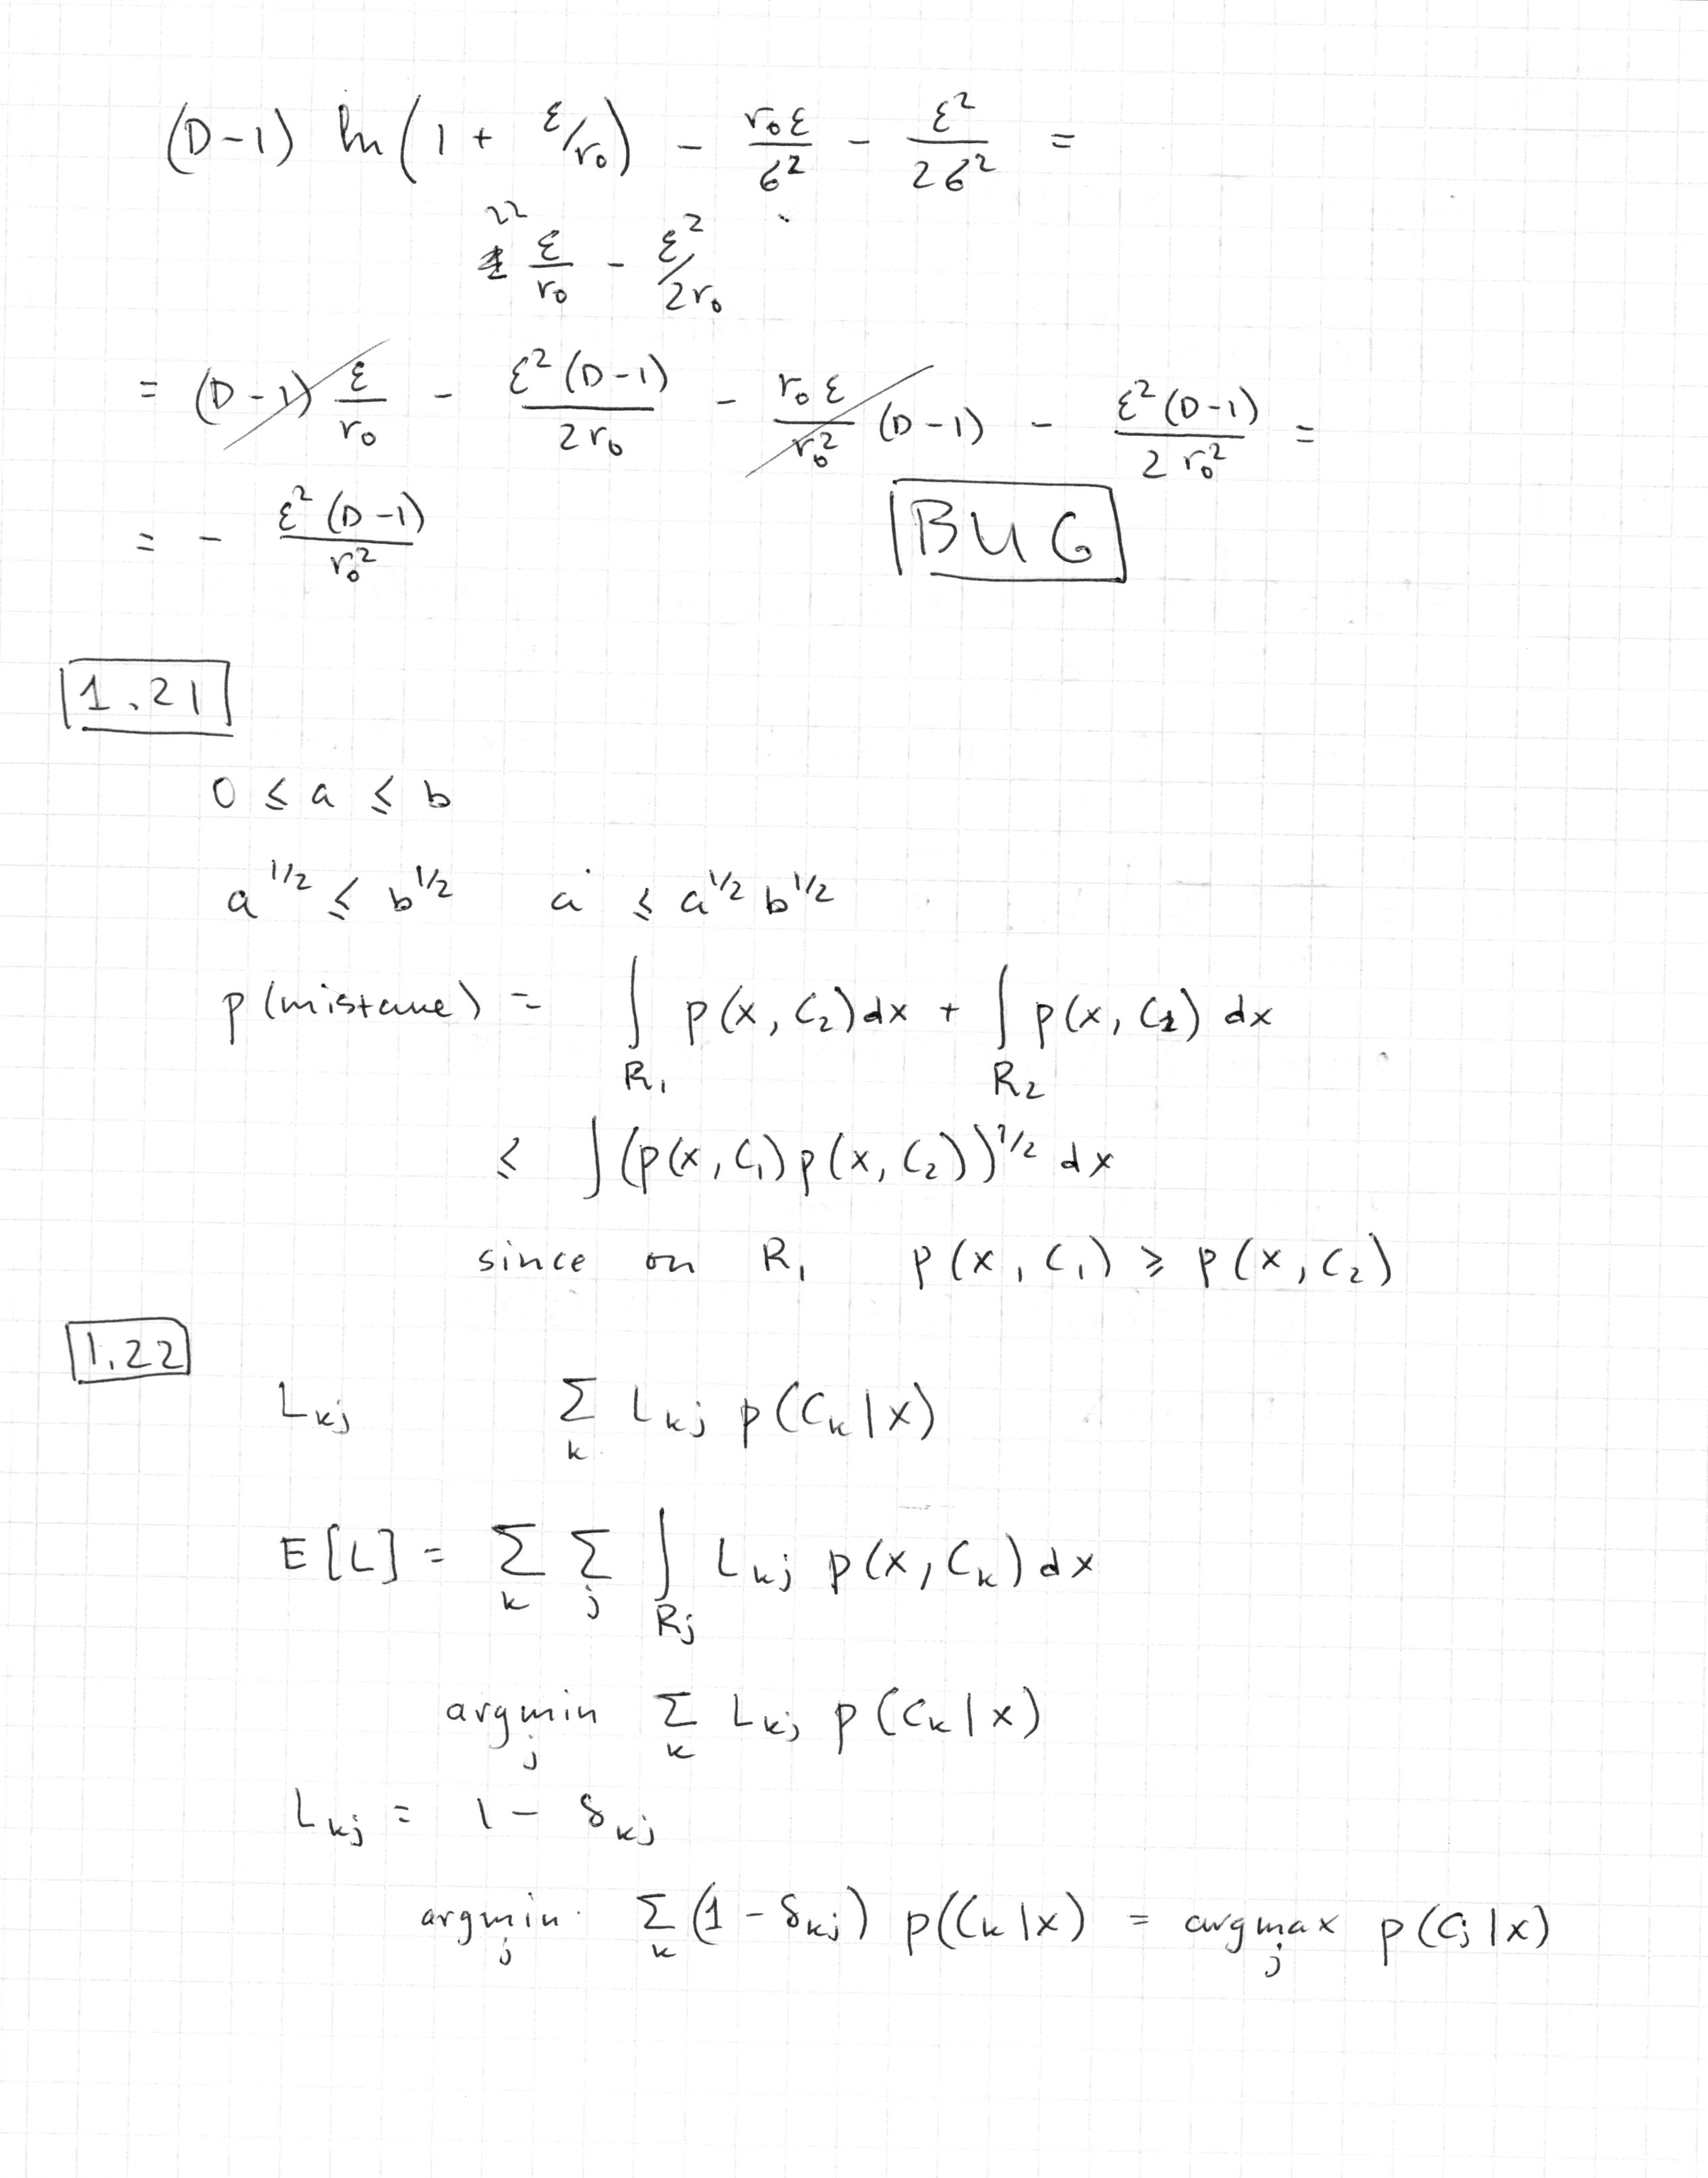 (D-1) ln(1 + ε/r₀) - r₀ε/σ² - ε²/2σ² =
≈ ε/r₀ - ε²/2r₀
= (D-1) ε/r₀ - ε²(D-1)/2r₀ - r₀ε/r₀² (D-1) - ε²(D-1)/2r₀² =
= - ε²(D-1)/r₀²
BUG
1.21
0 ≤ a ≤ b
a^1/2 ≤ b^1/2 a ≤ a^1/2 b^1/2
p(mistake) = ∫_R₁ p(x, C₂)dx + ∫_R₂ p(x, C₁) dx
≤ ∫(p(x, C₁)p(x, C₂))^1/2 dx
since on R₁ p(x, C₁) ≥ p(x, C₂)
1.22
L_kj Σ_k L_kj p(C_k|x)
E[L] = Σ_k Σ_j ∫_Rj L_kj p(x, C_k)dx
argmin_j Σ_k L_kj p(C_k|x)
L_kj = 1 - δ_kj
argmin_j Σ_k (1 - δ_kj) p(C_k|x) = argmax_j p(C_j|x)